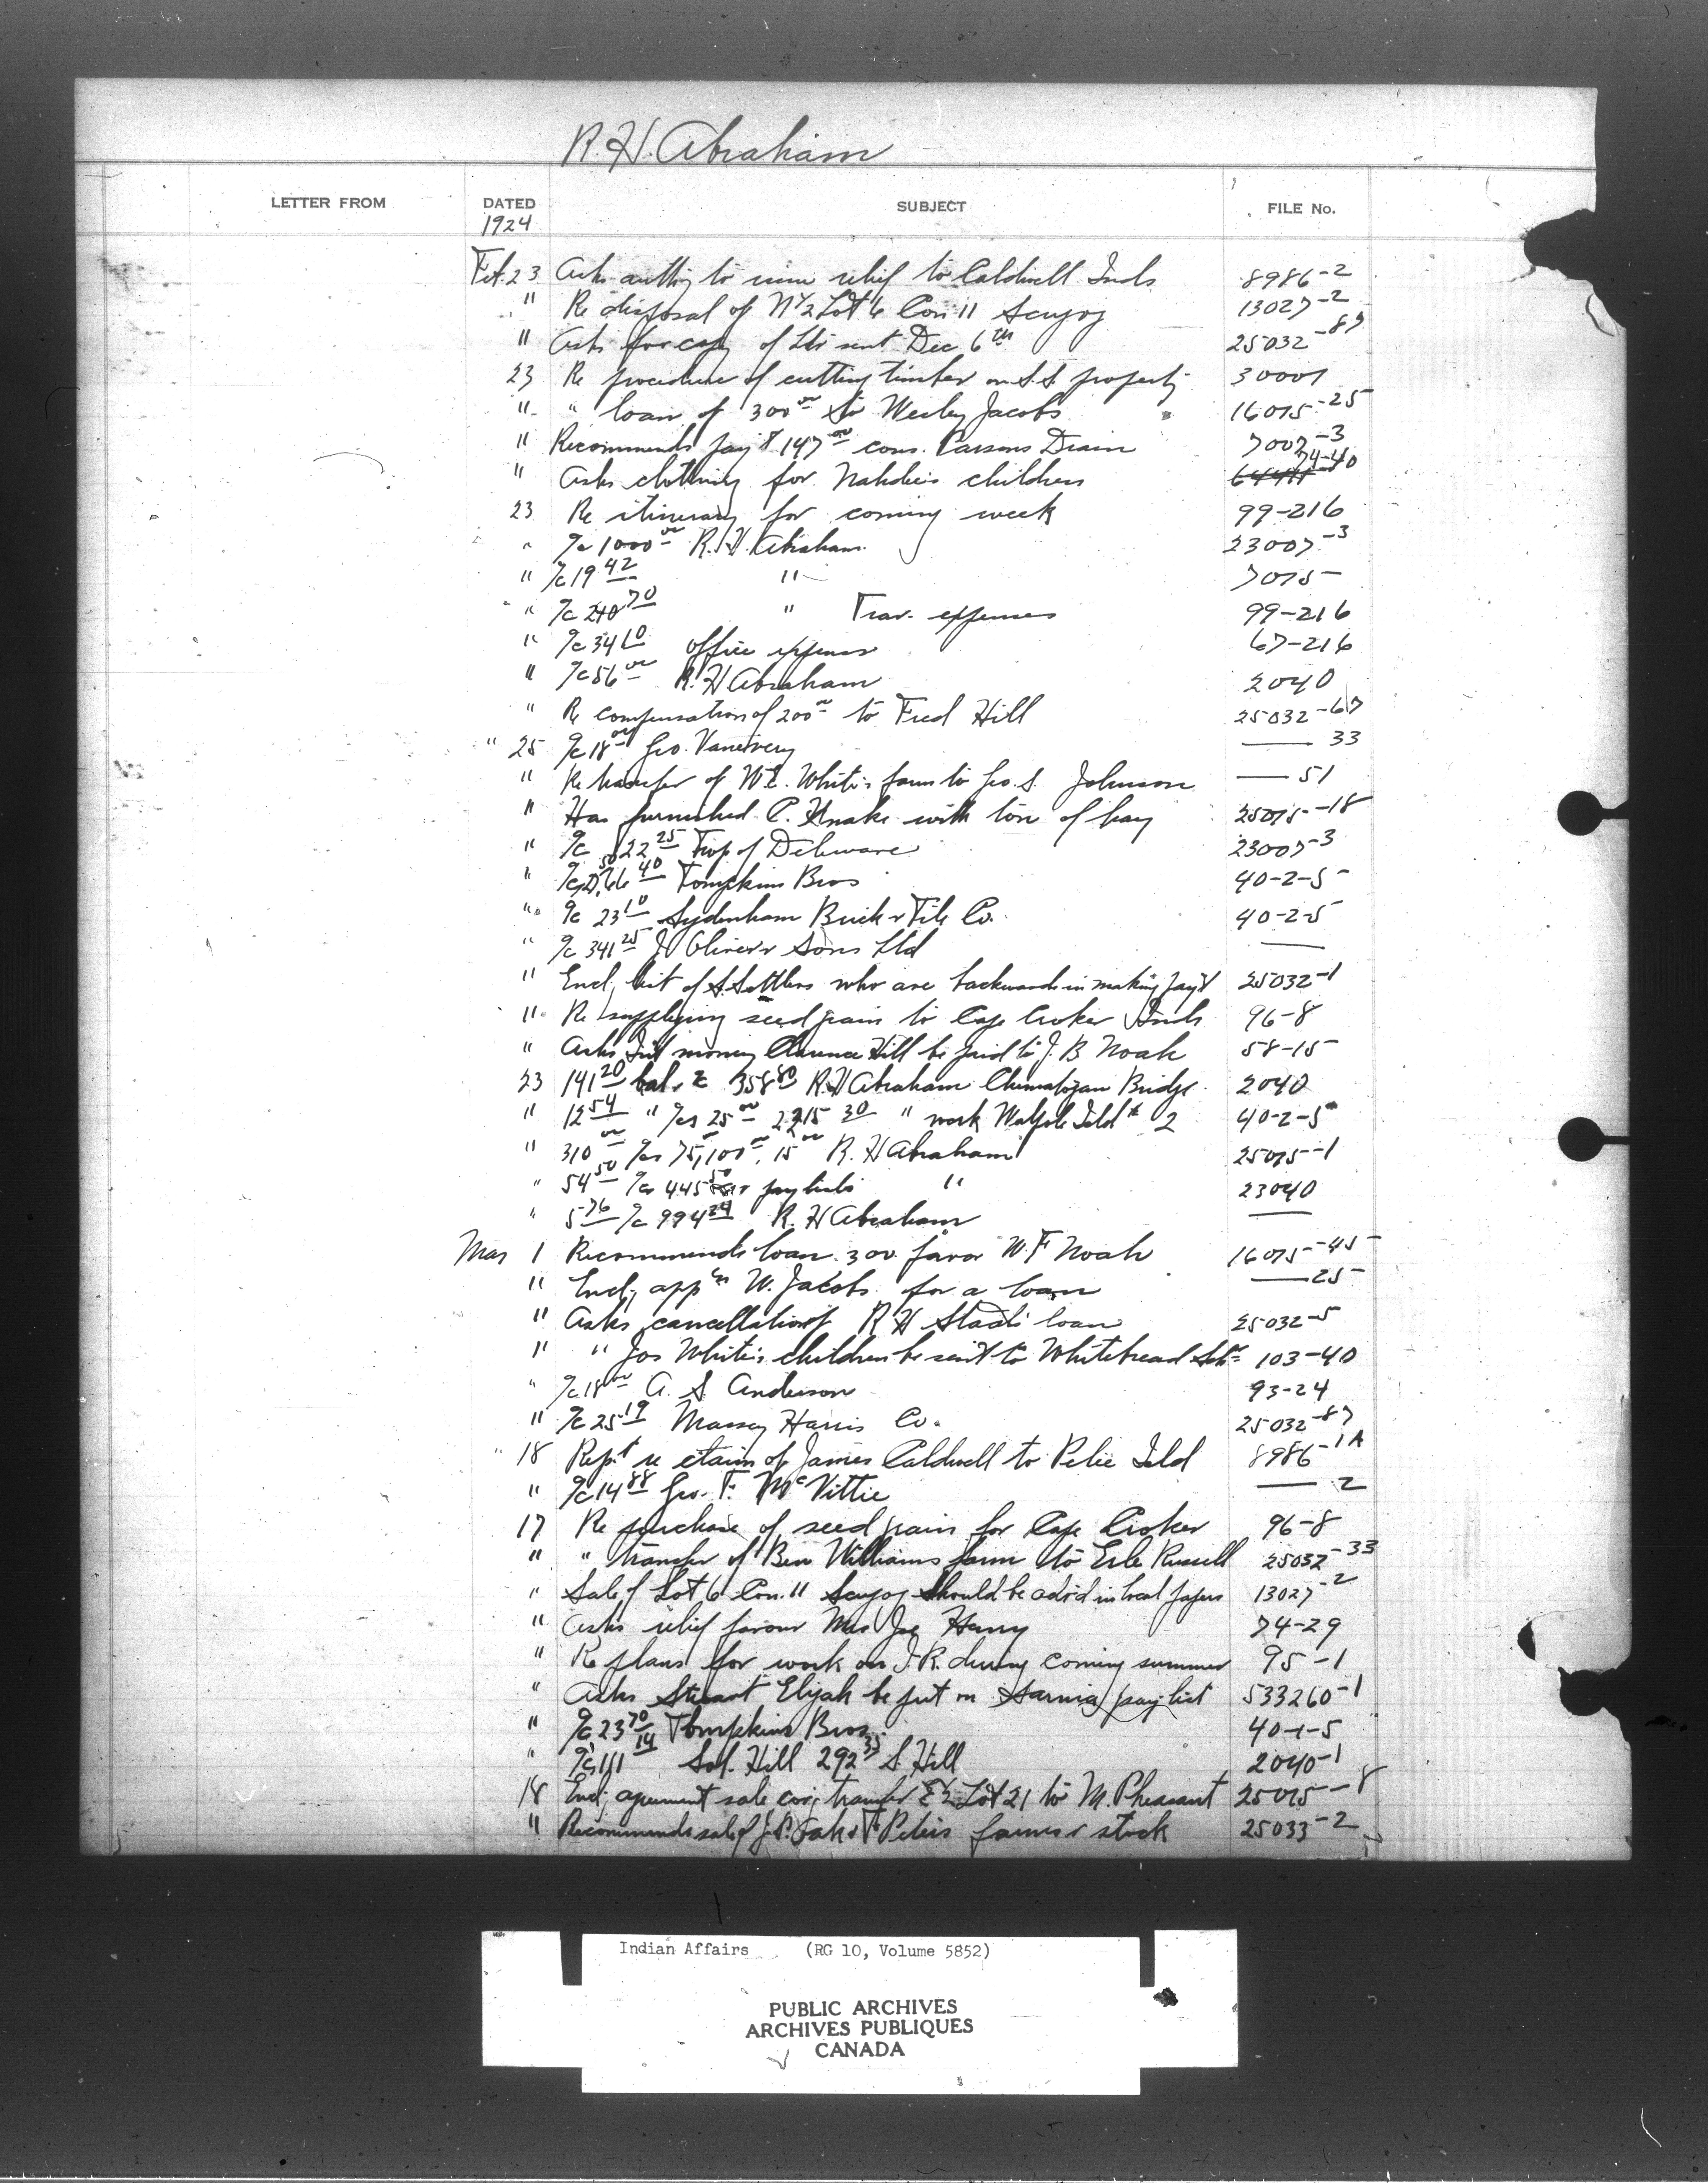 R. H. Abraham
LETTER FROM DATED SUBJECT FILE No.
1924
Feb. 23 Asks authy to issue relief to Caldwell Inds 8986-2
" Re disposal of N½ Lot 6 Con 11 Scugog 13027-2
" Asks for copy of Ltr sent Dec 6th 25032-87
23 Re procedure of cutting timber on S.S. property 30001
" " loan of 300 00 to Wesley Jacobs 16075-25
" Recommends pay't 147 00 cons. Parsons Drain 7007-3
" Asks clothing for children 74-40
23 Re itinerary for coming week 99-216
" a/c 1000 00 R. H. Abraham 23007-3
" a/c 19 42 " 7075
" a/c 240 70 " Trav. expenses 99-216
" a/c 34 10 office expenses 67-216
" a/c 56 00 R. H Abraham 2040
" Re compensation of 200 00 to Fred Hill 25032-67
" 25 a/c 18 00 Geo. Vanevery —— 33
" Re transfer of W.E. White's farm to Geo. S. Johnson —— 51
" Has furnished P. with ton of hay 25075-18
" a/c 22 25 Twp of Delaware 23007-3
" a/c 66 40 Tompkins Bros 40-2-5
" a/c 23 10 Sydenham Brick & Tile Co. 40-2-5
" a/c 341 25 J Oliver & Sons Ltd ——
" Encl, list of S. Settlers who are backwards in making pay't 25032-1
" Re supplying seed grain to Cape Croker Inds 96-8
" Asks Int money Clarence Hill be paid to J. B Noah 58-15
23 141 20 bal. & 358 80 R. H Abraham Bridge 2040
" 12 54 " a/cs 25 00 2215 30 " work Walpole Isld # 2 40-2-5
" 310 00 a/cs 75, 100 00, 15 00 R. H Abraham 25075-1
" 54 50 a/cs 445 50 pay lists " 23040
" 5 76 a/c 994 24 R. H Abraham ——
Mar 1 Recommends loan 300 favor W. F Noah 16075-45
" Encl, app'ln W. Jacobs for a loan —— 25
" Asks cancellation of R H loan 25032-5
" " Jos White's children be sent to Whitebread Sch 103-40
" a/c 18 00 A. S. Anderson 93-24
" a/c 25 19 Massey Harris Co. 25032-87
" 18 Rep't re claim of James Caldwell to Pelee Isld 8986-1A
" a/c 14 88 Geo. F. McVittie —— 2
17 Re purchase of seed grain for Cape Croker 96-8
" " transfer of Ben Williams farm to Erle Russell 25032-33
" Sale of Lot 6 Con. 11 Scugog should be adv'd in local papers 13027-2
" Asks relief favour Mrs Joe Henry 74-29
" Re plans for work on I.R. during coming summer 95-1
" Asks Stewart Elijah be put on Sarnia pay list 533260-1
" a/c 23 70 Tompkins Bros. 40-1-5
" a/c 111 14 Sol. Hill 292 33 S. Hill 2040-1
18 Encl, agreement sale cov'g transfer E½ Lot 21 to M. Pheasant 25075-8
" Recommends sale of & F Peters farms & stock 25033-2
Indian Affairs (RG 10, Volume 5852)
PUBLIC ARCHIVES
ARCHIVES PUBLIQUES
CANADA